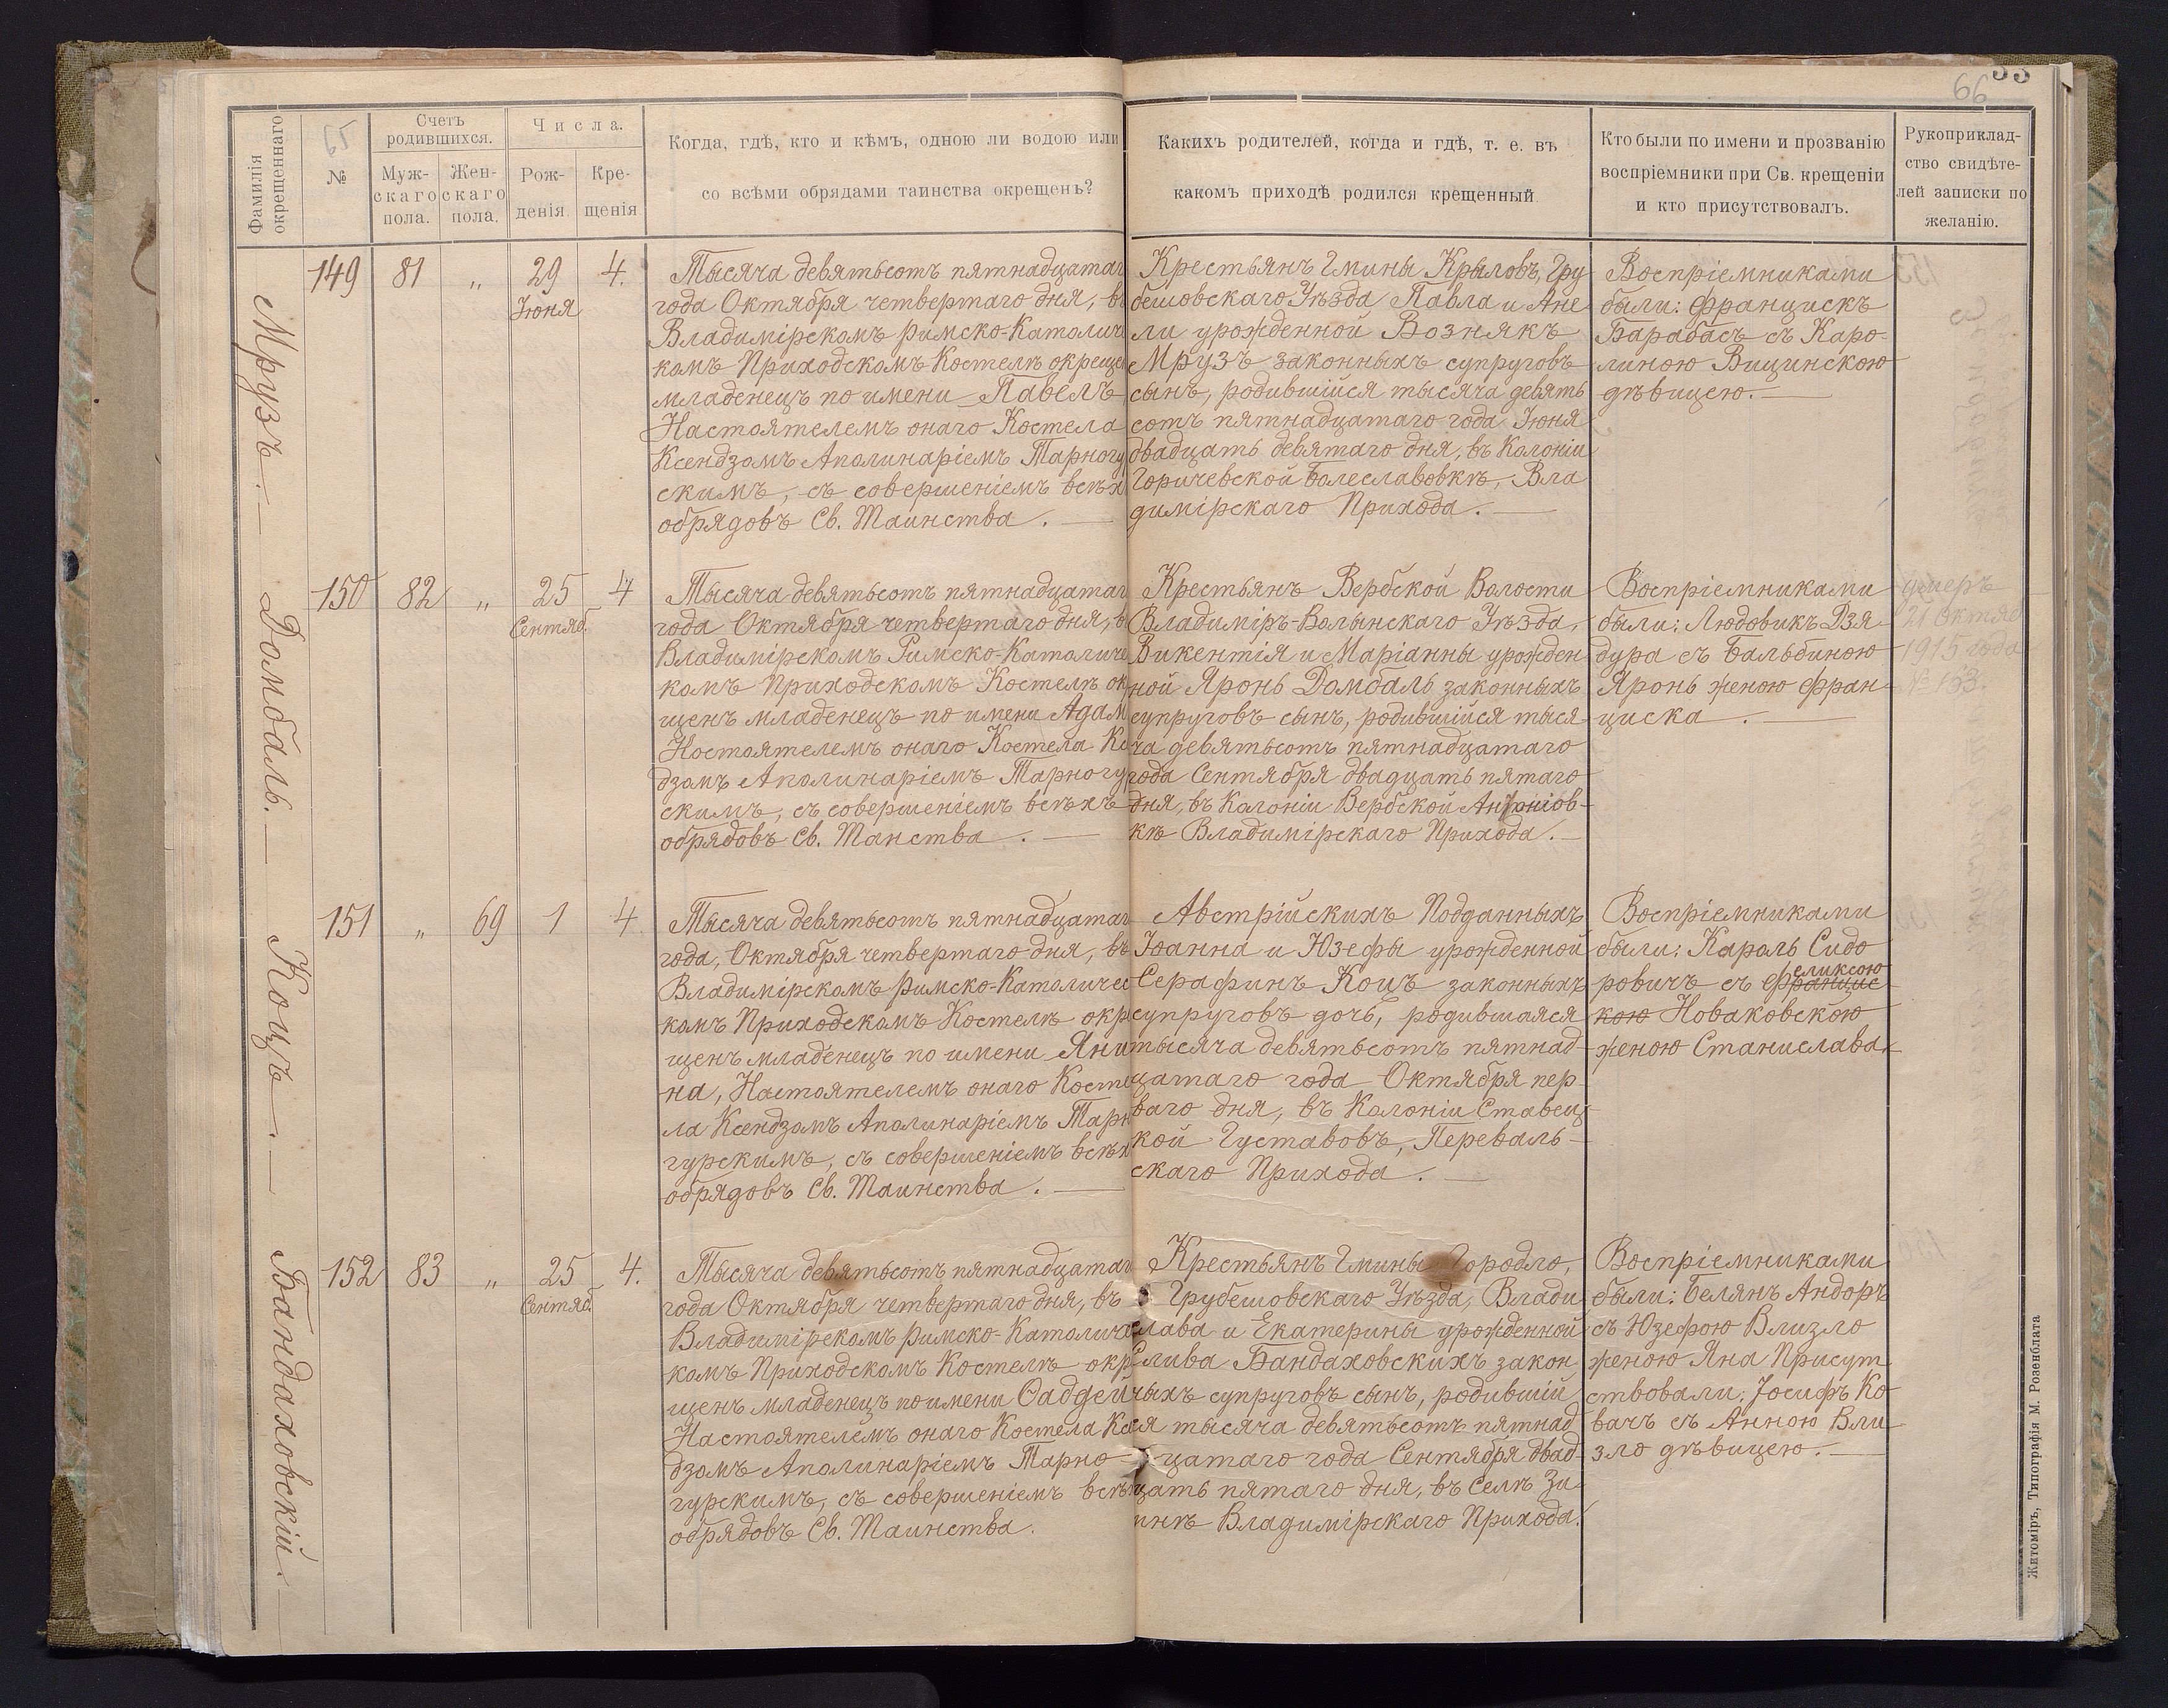 66
33
65
Фамилія
окрещеннаго
№
Счетъ
родившихся.
Муж-
скаго
пола.
Жен-
скаго
пола.
Числа.
Рож-
денія
Кре-
щенія
Когда, гдѣ, кто и кѣмъ, одною ли водою или
со всѣми обрядами таинства окрещенъ?
Какихъ родителей, когда и гдѣ, т. е. въ
какомъ приходѣ родился крещенный
Кто были по имени и прозванію
воспріемники при Св. крещеніи
и кто присутствовалъ.
Рукоприклад-
ство свидѣте-
лей записки по
желанію.
Мрузъ.
149 81 „ 29 4.
Іюня
Тысяча девятьсотъ пятнадцатаг
года Октября четвертаго дня, въ
Владимірскомъ Римско-Католиче
комъ Приходскомъ Костелѣ окреще
младенецъ по имени Павелъ
Настоятелемъ онаго Костела
Ксендзомъ Аполинаріемъ Тарногу
скимъ, съ совершеніемъ всѣх
обрядовъ Св. Таинства.
Крестьянъ Гмины Крыловъ, Гру
бешовскаго Уѣзда Павла и Ане
ли урожденной Вознякъ
Мрузъ законныхъ супруговъ
сынъ, родившійся тысяча девять
сотъ пятнадцатаго года Іюня
двадцать девятаго дня, въ Колоніи
Горичевской Болеславовкѣ, Вла
димірскаго Прихода.
Воспріемниками
были: Францискъ
Барабасъ съ Каро-
линою Вицинскою
дѣвицею.
Домбаль.
150 82 „ 25 4
Сентяб.
Тысяча девятьсотъ пятнадцатаг
года Октября четвертаго дня, в
Владимірскомъ Римско-Католиче
комъ Приходскомъ Костелѣ ок
щенъ младенецъ по имени Адам
Ностоятелемъ онаго Костела Кс
дзомъ Аполинаріемъ Тарногу
скимъ, съ совершеніемъ всѣхъ
обрядовъ Св. Танства.
Крестьянъ Вербской Волости
Владиміръ-Волынскаго Уѣзда,
Викентія и Маріанны урожден
ной Яронь Домбаль законныхъ
супруговъ сынъ, родившійся тыся
ча девятьсотъ пятнадцатаго
года Сентября двадцать пятаго
дня, въ Колоніи Вербской Антоніов-
кѣ Владимірскаго Прихода.
Воспріемниками
были: Людовикъ Дзя
дура съ Бальбиною
Яронь женою Фран-
циска.
Умеръ
21 Октяб
1915 года
№ 153.
Коцъ.
151 „ 69 1 4
Тысяча девятьсотъ пятнадцатаг
года, Октября четвертаго дня, въ
Владимірскомъ Римско-Католичес
комъ Приходскомъ Костелѣ окр
щенъ младенецъ по имени Яни
на, Настоятелемъ онаго Косте
ла Ксендзомъ Аполинаріемъ Тарн
гурскимъ, съ совершеніемъ всѣх
обрядовъ Св. Таинства.
Австрійскихъ Подданныхъ
Іоанна и Юзефы урожденной
Серафинъ Коцъ законныхъ
супруговъ дочь, родившаяся
тысяча девятьсотъ пятнад-
цатаго года Октября пер-
ваго дня, въ Колоніи Ставец-
кой Густавовъ, Переваль-
скаго Прихода.
Воспріемниками
были: Кароль Сидо
еликсою
ровичъ съ Францис
кою Новаковскою
женою Станислава.
Бандаховскій.
152 83 „ 25 4.
Сентяб.
Тысяча девятьсотъ пятнадцатаг
года Октября четвертаго дня, въ
Владимірскомъ Римско-Католиче
комъ Приходскомъ Костелѣ окр
щенъ младенецъ по имени Ѳаддей
Настоятелемъ онаго Костела Ксе
дзомъ Аполинаріемъ Тарно-
гурскимъ, съ совершеніемъ всѣ
обрядовъ Св. Таинства.
Крестьянъ Гмины Городло,
Грубешовскаго Уѣзда, Влади
слава и Екатерины урожденной
Слива Бандаховскихъ закон
ныхъ супруговъ сынъ, родившій
ся тысяча девятьсотъ пятнад
цатаго года Сентября двад
цать пятаго дня, въ Селѣ Зи
мнѣ Владимірскаго Прихода.
Воспріемниками
были: Белянъ Андоръ
съ Юзефою Влизло
женою Яна Присут
ствовали; Іосифъ Ко
вачъ съ Анною Вли
зло дѣвицею.
Житоміръ, Типографія М. Розенблата